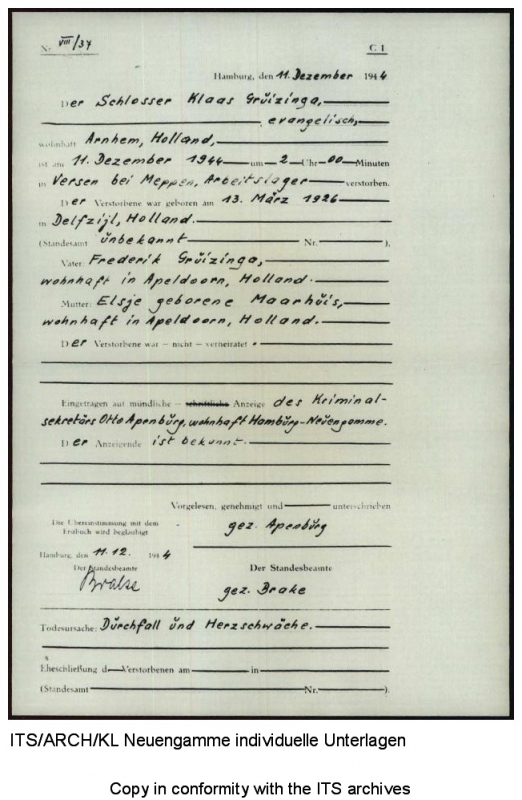 Nr. VIII/37 C 1
Hamburg, den 11. Dezember 1944
Der Schlosser Klaas Grüizinga,
evangelisch,
wohnhaft Arnhem, Holland,
ist am 11. Dezember 1944 um 2 Uhr 00 Minuten
in Versen bei Meppen, Arbeitslager verstorben.
Der Verstorbene war geboren am 13. März 1926
in Delfzijl, Holland.
(Standesamt ünbekannt Nr. ).
Vater: Frederik Grüizinga,
wohnhaft in Apeldoorn, Holland.
Mutter: Elsje geborene Maarhüis,
wohnhaft in Apeldoorn, Holland.
Der Verstorbene war – nicht – verheiratet.
Eingetragen auf mündliche – schriftliche Anzeige des Kriminal-
sekretärs Otto Apenbürg, wohnhaft Hambürg-Neüengamme.
Der Anzeigende ist bekannt.
Vorgelesen, genehmigt und unterschrieben
Die Übereinstimmung mit dem
Erstbuch wird beglaubigt
gez. Apenbürg
Hamburg, den 11.12. 1944
Der Standesbeamte Der Standesbeamte
Brake gez. Brake
Todesursache: Dürchfall ünd Herzschwäche.
Eheschließung d Verstorbenen am in
(Standesamt Nr. ).
ITS/ARCH/KL Neuengamme individuelle Unterlagen
Copy in conformity with the ITS archives